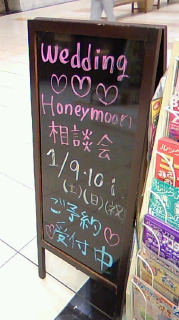 Wedding
♡♡♡
Honeymoon
相談会
1/9・10
(土)(日)(祝)
ご予約
受付中